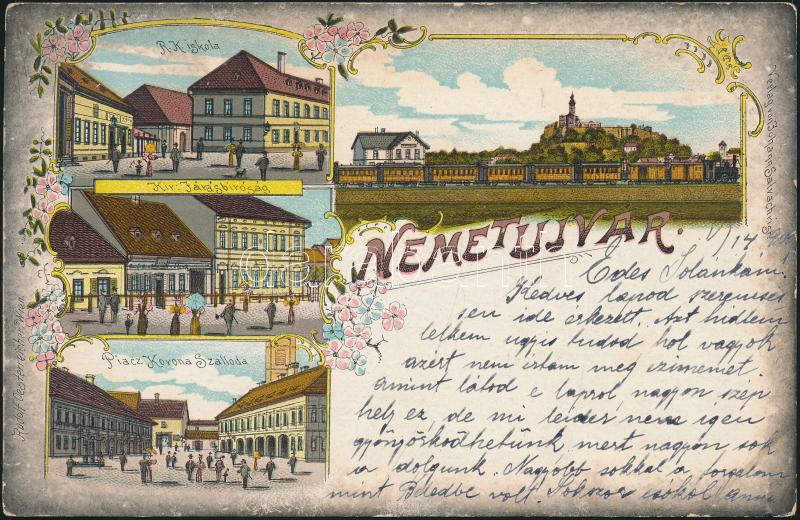 R. K. iskola
Kir. Járásbiróság
Piacz Korona Szálloda
NÉMETUJVÁR.
V/14
Édes Jolánkám!
Kedves lapod szerencse-
sen ide érkezett. Azt hittem
lelkem úgyis tudod hol vagyok
azért nem irtam meg czimemet.
amint látod e lapról nagyon szép
hely ez, de mi leider nem igen
gyönyörködhetünk mert nagyon sok
a dolgunk. Nagyobb sokkal a forgalom
mint Beledbe volt. Sokszor csókol